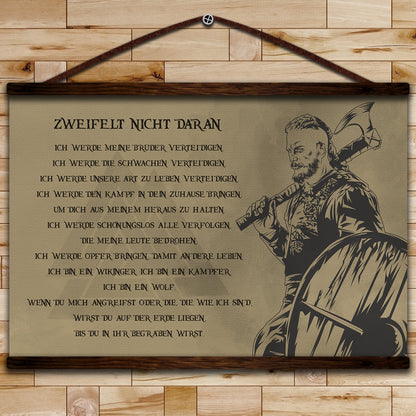 ZWEIFELT NICHT DARAN
ICH WERDE MEINE BRÜDER VERTEIDIGEN.
ICH WERDE DIE SCHWACHEN VERTEIDIGEN.
ICH WERDE UNSERE ART ZU LEBEN VERTEIDIGEN.
ICH WERDE DEN KAMPF IN DEIN ZUHAUSE BRINGEN,
UM DICH AUS MEINEM HERAUS ZU HALTEN.
ICH WERDE SCHONUNGSLOS ALLE VERFOLGEN,
DIE MEINE LEUTE BEDROHEN.
ICH WERDE OPFER BRINGEN, DAMIT ANDERE LEBEN.
ICH BIN EIN WIKINGER. ICH BIN EIN KÄMPFER.
ICH BIN EIN WOLF.
WENN DU MICH ANGREIFST ODER DIE, DIE WIE ICH SIND,
WIRST DU AUF DER ERDE LIEGEN,
BIS DU IN IHR BEGRABEN WIRST.